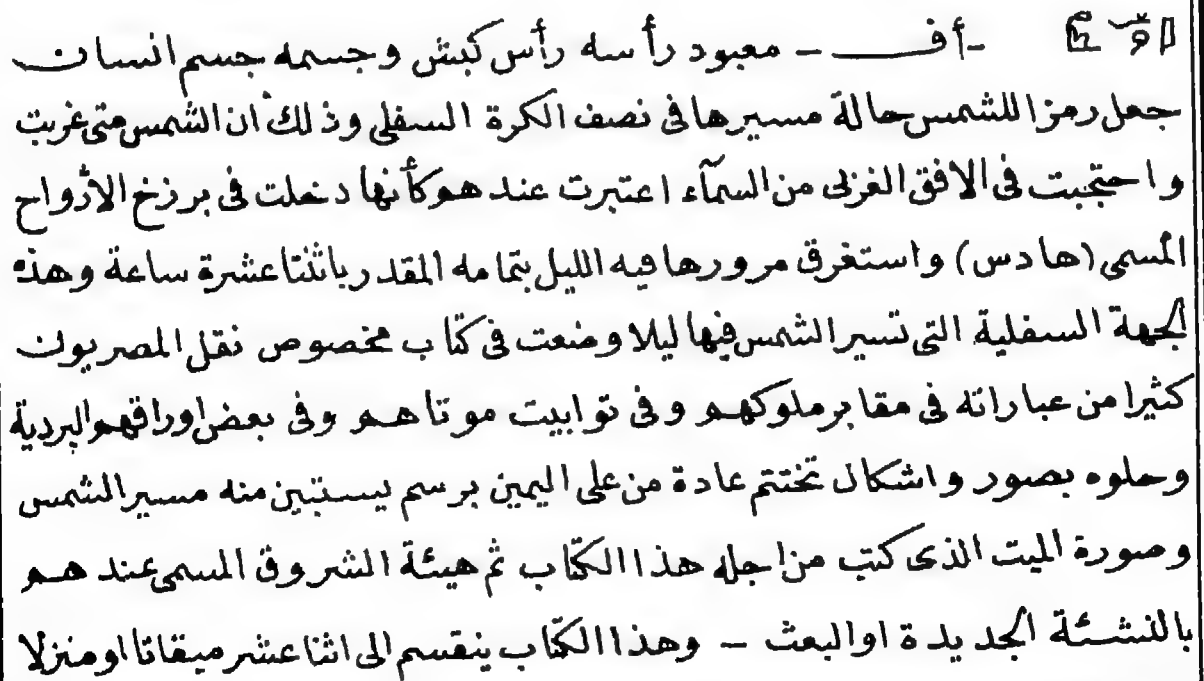 - أف - معبود رأسه رأس كبش وجسمه جسم انسان
جعل رمزا للشمس حالة مسيرها فى نصف الكرة السفلى وذلك أن الشمس متى غربت
واحتجبت فى الافق الغربى من السمآء اعتبرت عندهم كأنها دخلت فى برزخ الأرواح
المسمى (هادس) واستغرق مرورها فيه الليل بتمامه المقدر باثنتا عشرة ساعة وهذه
الجهة السفلية التى تسير الشمس فيها ليلا وضعت فى كتاب مخصوص نقل المصريون
كثيرا من عباراته فى مقابر ملوكهم وفى توابيت موتاهم وفى بعض اوراقهم البردية
وحلوه بصور واشكال تختتم عادة من على اليمين برسم يستبين منه مسير الشمس
وصورة الميت الذى كتب من اجله هذا الكتاب ثم هيئة الشروق المسمى عندهم
بالنشئة الجديدة او البعث - وهذا الكتاب ينقسم الى اثنا عشر ميقاتا او منزلا